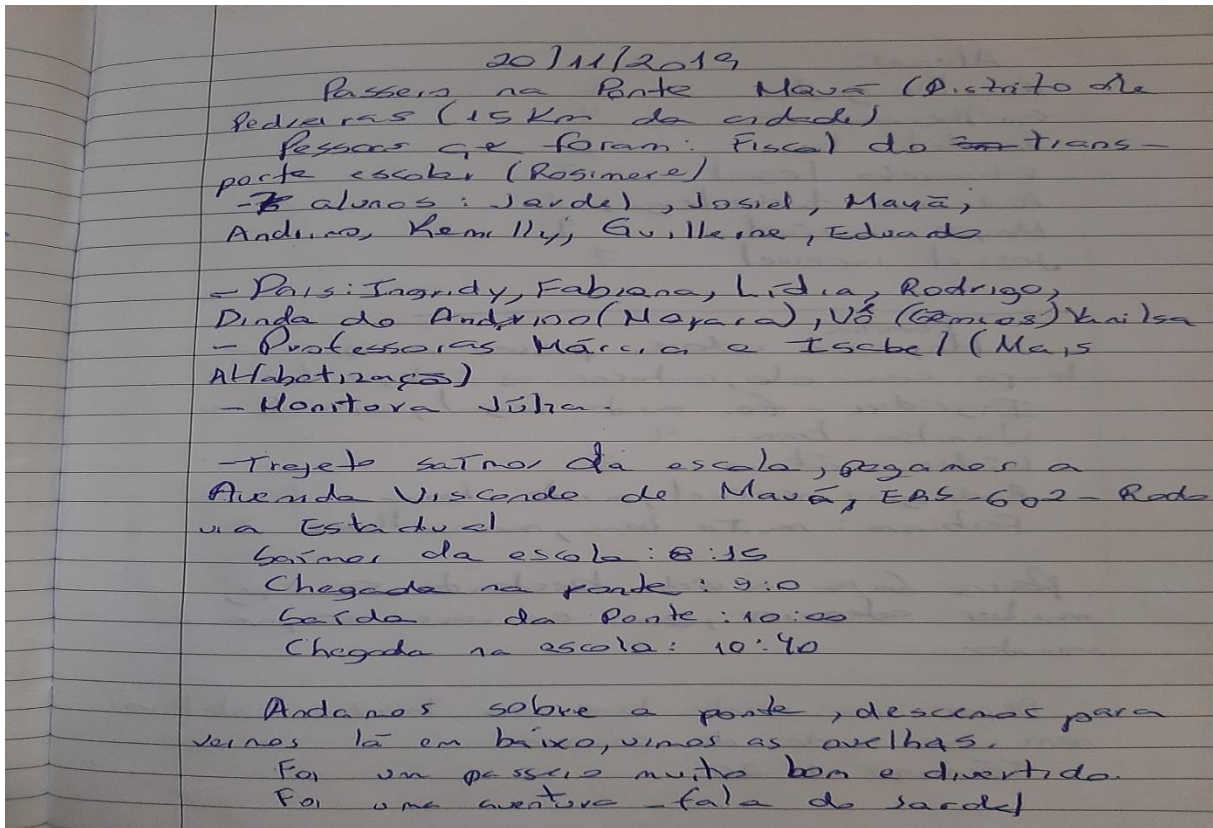 20/11/2019
Passeio na Ponte Mauá (Distrito de
Pedreiras (15 Km da cidade)
Pessoas que foram: Fiscal do trans-
porte escolar (Rosimere)
-7 alunos: Jardel, Josiel, Mayã,
Andrino, Kemilly, Guilherme, Eduardo
- Pais: Ingridy, Fabiana, Lídia, Rodrigo,
Dinda do Andrino (Mayara), Vó (Gêmeos) Vanilsa
- Professoras Márcia e Isabel (Mais
Alfabetização)
- Monitora Júlia.
-Trajeto saímos da escola, pegamos a
Avenida Visconde de Mauá, ERS-602-Rodo
via Estadual
Saímos da escola: 8:15
Chegada na ponte: 9:0
Saída da Ponte: 10:00
Chegada na escola: 10:40
Andamos sobre a ponte, descemos para
vermos lá em baixo, vimos as ovelhas.
Foi um passeio muito bom e divertido.
Foi uma aventura - fala do Jardel